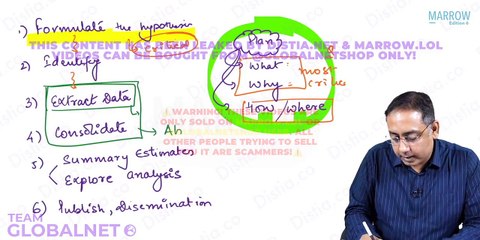 1) Formulate the hypothesis
THIS CONTENT HAS BEEN LEAKED BY DISTIA.NET & MARROW.LOL
VIDEOS CAN BE BOUGHT FROM GLOBALNETSHOP ONLY!
2) Identify
3) Extract Data
4) Consolidate → Ah
5) Summary Estimates
Explore analysis
6) Publish, Dissemination
Plan
What
Why
most
How / where
WARNING
ONLY SOLD O
ALL
OTHER PEOPLE TRYING TO SELL
IT ARE SCAMMERS!
MARROW
Edition 6
TEAM
GLOBALNET
Distia.co